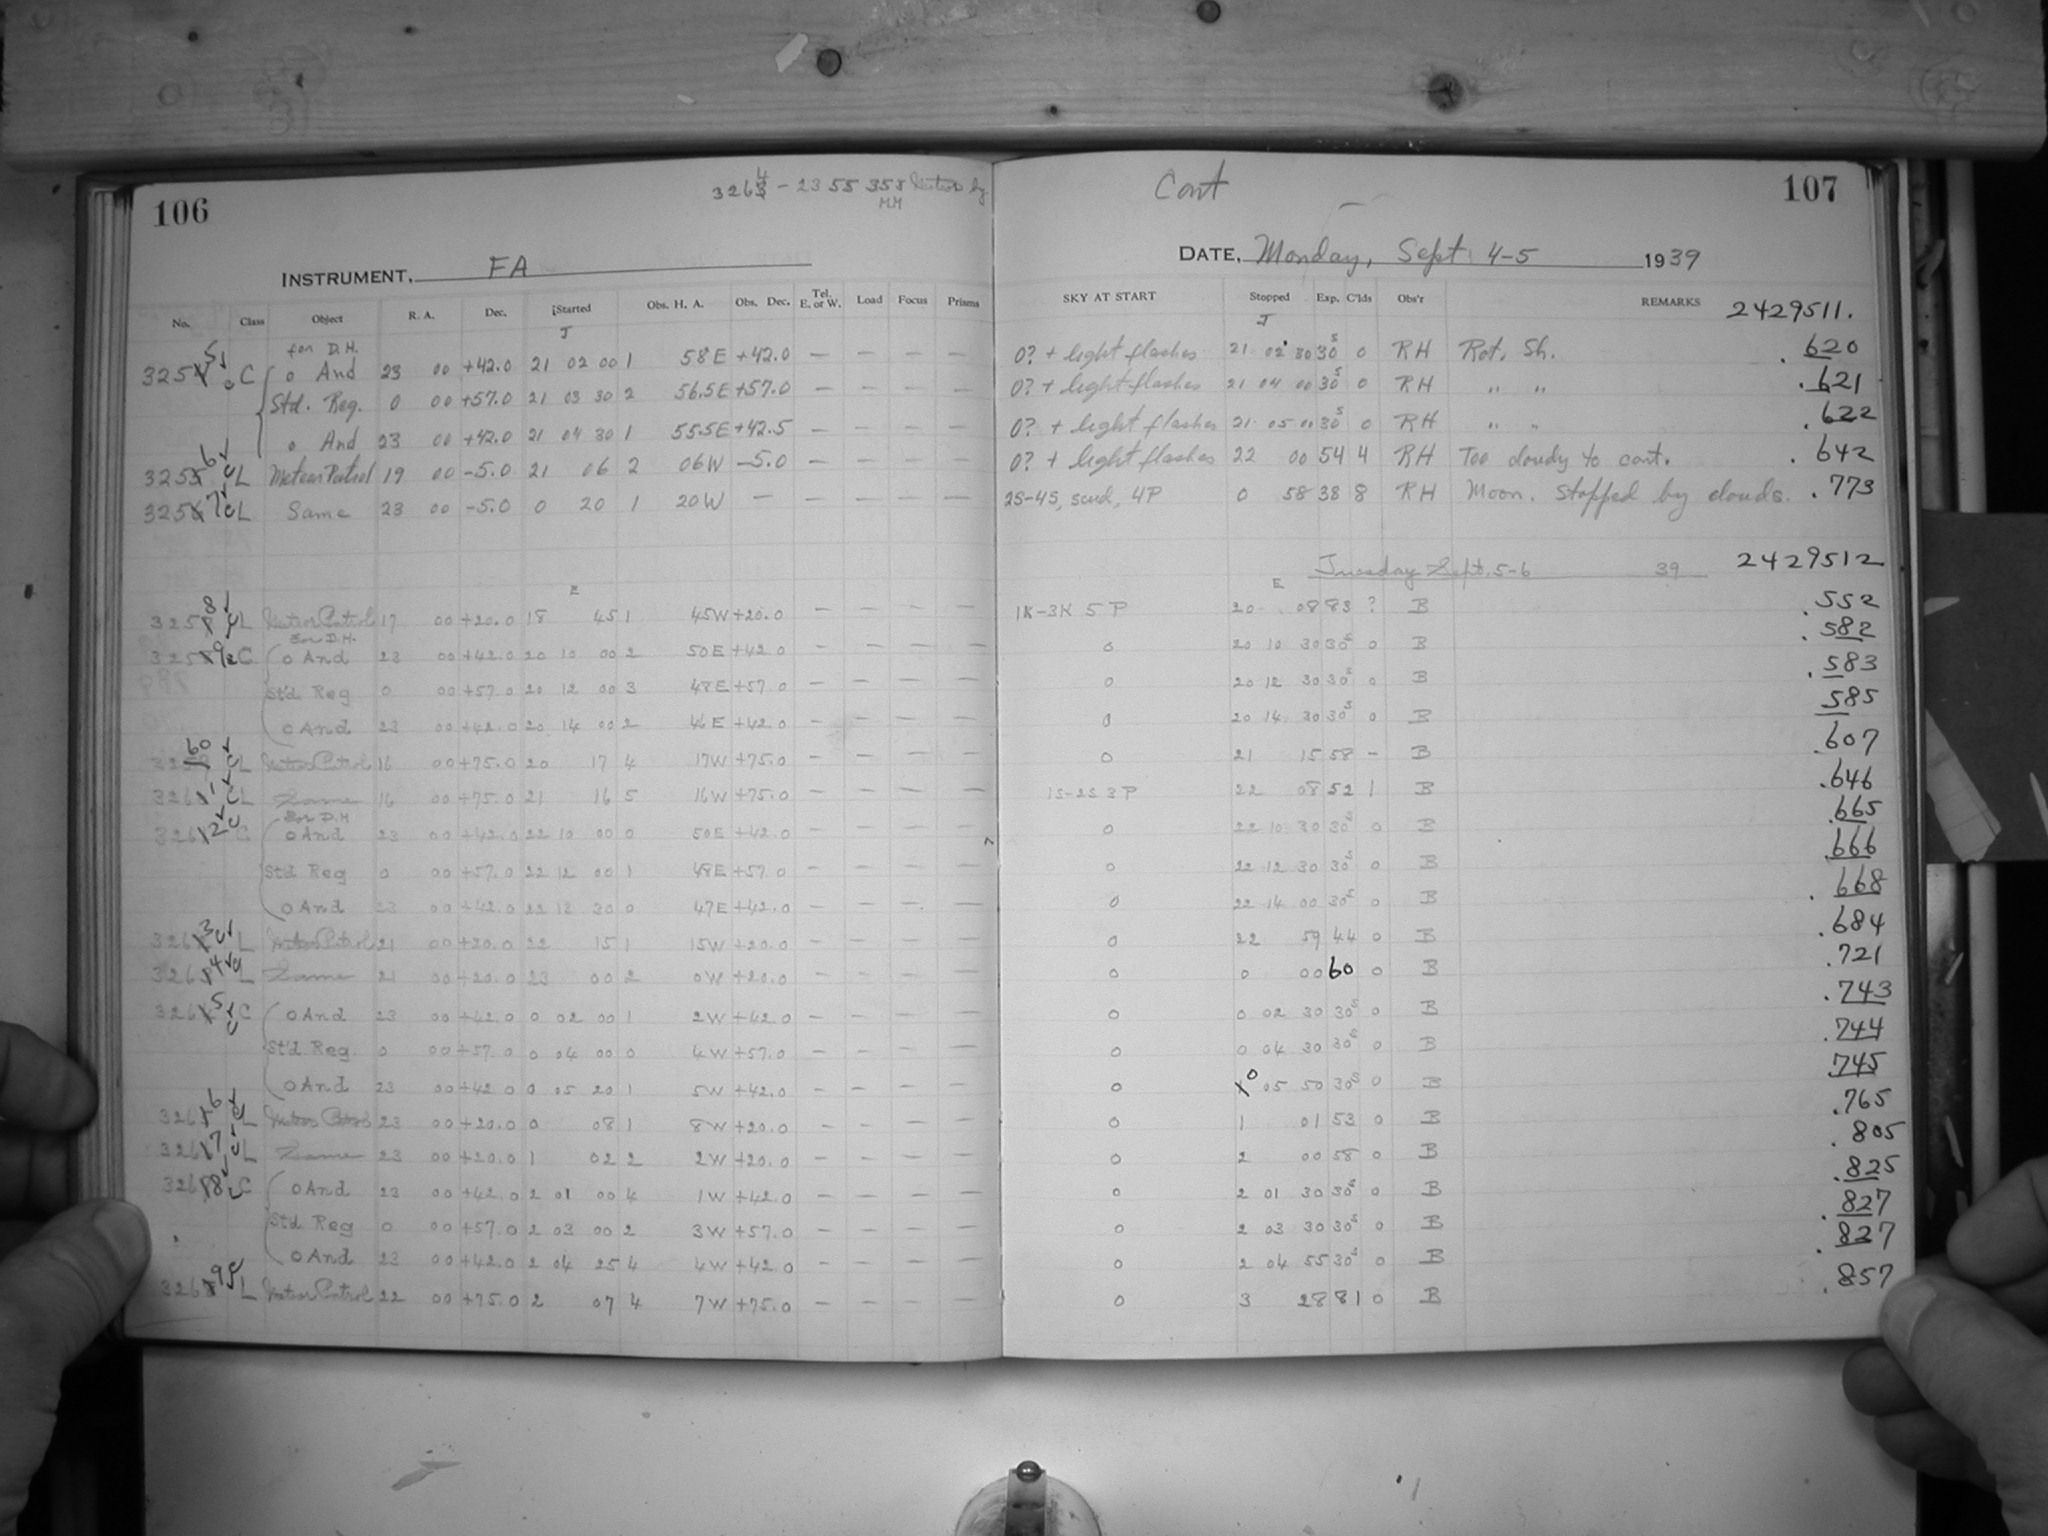 106
3264 - 23 55 358 Meteor by
MM
Cont
107
INSTRUMENT, FA
DATE, Monday, Sept 4-5 1939
No. Class Object R. A. Dec. Started Obs. H. A. Obs. Dec. Tel. E. or W. Load Focus Prisms SKY AT START Stopped Exp. C'lds Obs'r REMARKS 2429511.
J J
for D.H.
3255 C o And 23 00 +42.0 21 02 00 1 58E +42.0 — — — — 0? + light flashes 21 02 30 30s 0 RH Rot. Sh. .620
Std. Reg. 0 00 +57.0 21 03 30 2 56.5E +57.0 — — — — 0? + light flashes 21 04 00 30s 0 RH " " .621
o And 23 00 +42.0 21 04 30 1 55.5E +42.5 — — — — 0? + light flashes 21 05 00 30s 0 RH " " .622
3256 L Meteor Patrol 19 00 -5.0 21 06 2 06W -5.0 — — — — 0? + light flashes 22 00 54 4 RH Too cloudy to cont. .642
3257 L Same 23 00 -5.0 0 20 1 20W — — — — — 2S-4S, scud, 4P 0 58 38 8 RH Moon. Stopped by clouds. .773
Tuesday Sept. 5-6 39 2429512
E E
3258 L Meteor Patrol 17 00 +20.0 18 45 1 45W +20.0 — — — — 1K-3K 5P 20 08 83 ? B .552
For D.H.
3259 C o And 23 00 +42.0 20 10 00 2 50E +42.0 — — — — 0 20 10 30 30s 0 B .582
Std Reg 0 00 +57.0 20 12 00 3 48E +57.0 — — — — 0 20 12 30 30s 0 B .583
o And 23 00 +42.0 20 14 00 2 46E +42.0 — — — — 0 20 14 30 30s 0 B .585
3260 L Meteor Patrol 16 00 +75.0 20 17 4 17W +75.0 — — — — 0 21 15 58 - B .607
3261 L Same 16 00 +75.0 21 16 5 16W +75.0 — — — — 1S-2S 3P 22 08 52 1 B .646
For D.H
3262 C o And 23 00 +42.0 22 10 00 0 50E +42.0 — — — — 0 22 10 30 30s 0 B .665
Std Reg 0 00 +57.0 22 12 00 1 48E +57.0 — — — — 0 22 12 30 30s 0 B .666
o And 23 00 +42.0 22 13 30 0 47E +42.0 — — — — 0 22 14 00 30s 0 B .668
3263 L Meteor Patrol 21 00 +20.0 22 15 1 15W +20.0 — — — — 0 22 59 44 0 B .684
3264 L Same 21 00 +20.0 23 00 2 0W +20.0 — — — — 0 0 00 60 0 B .721
3265 C o And 23 00 +42.0 0 02 00 1 2W +42.0 — — — — 0 0 02 30 30s 0 B .743
Std Reg. 0 00 +57.0 0 04 00 0 4W +57.0 — — — — 0 0 04 30 30s 0 B .744
o And 23 00 +42.0 0 05 20 1 5W +42.0 — — — — 0 0 05 50 30s 0 B .745
3266 L Meteor Patrol 23 00 +20.0 0 08 1 8W +20.0 — — — — 0 1 01 53 0 B .765
3267 L Same 23 00 +20.0 1 02 2 2W +20.0 — — — — 0 2 00 58 0 B .805
3268 C o And 23 00 +42.0 2 01 00 4 1W +42.0 — — — — 0 2 01 30 30s 0 B .825
Std Reg 0 00 +57.0 2 03 00 2 3W +57.0 — — — — 0 2 03 30 30s 0 B .827
o And 23 00 +42.0 2 04 25 4 4W +42.0 — — — — 0 2 04 55 30s 0 B .827
3269 L Meteor Patrol 22 00 +75.0 2 07 4 7W +75.0 — — — — 0 3 28 81 0 B .857